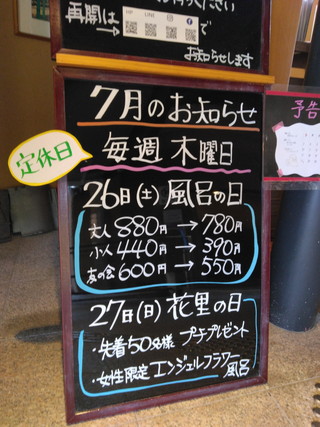 再開は
で
お知らせします
LINE
7月のお知らせ
定休日
毎週 木曜日
26日(土) 風呂の日
大人 880円 → 780円
小人 440円 → 390円
友の会 600円 → 550円
27日(日) 花里の日
・先着50名様 プチプレゼント
・女性限定 エンジェルフラワー
風呂
予告